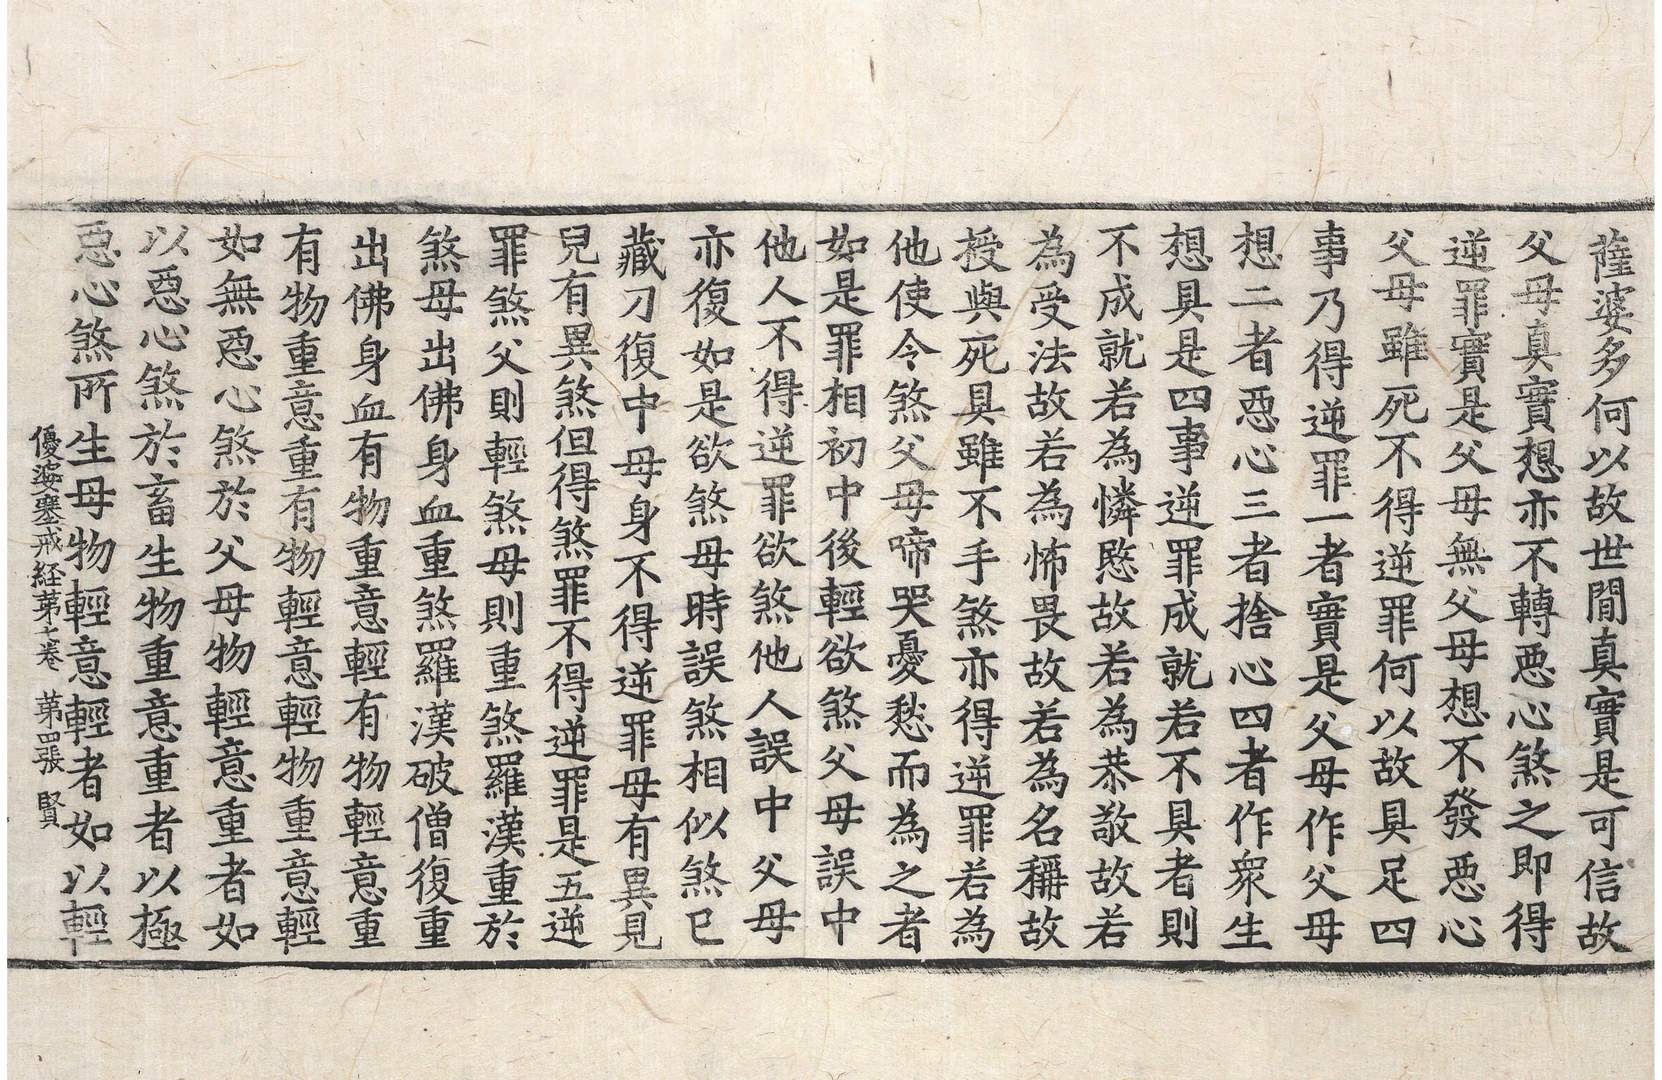 薩婆多何以故世間真實是可信故
父母真實想亦不轉惡心煞之即得
逆罪實是父母無父母想不發惡心
父母雖死不得逆罪何以故具足四
事乃得逆罪一者實是父母作父母
想二者惡心三者捨心四者作衆生
想具是四事逆罪成就若不具者則
不成就若為憐愍故若為恭敬故若
為受法故若為怖畏故若為名稱故
授與死具雖不手煞亦得逆罪若為
他使令煞父母啼哭憂愁而為之者
如是罪相初中後輕欲煞父母誤中
他人不得逆罪欲煞他人誤中父母
亦復如是欲煞母時誤煞相似煞已
藏刀復中母身不得逆罪母有異見
兒有異煞但得煞罪不得逆罪是五逆
罪煞父則輕煞母則重煞羅漢重於
煞母出佛身血重煞羅漢破僧復重
出佛身血有物重意輕有物輕意重
有物重意重有物輕意輕物重意輕
如無惡心煞於父母物輕意重者如
以惡心煞於畜生物重意重者以極
惡心煞所生母物輕意輕者如以輕
優婆塞戒経苐七卷　苐四張　賢